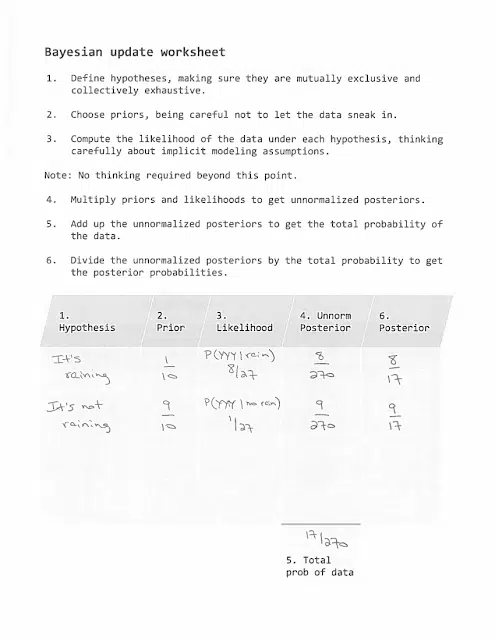 Bayesian update worksheet
1. Define hypotheses, making sure they are mutually exclusive and
collectively exhaustive.
2. Choose priors, being careful not to let the data sneak in.
3. Compute the likelihood of the data under each hypothesis, thinking
carefully about implicit modeling assumptions.
Note: No thinking required beyond this point.
4. Multiply priors and likelihoods to get unnormalized posteriors.
5. Add up the unnormalized posteriors to get the total probability of
the data.
6. Divide the unnormalized posteriors by the total probability to get
the posterior probabilities.
1. 2. 3. 4. Unnorm 6.
Hypothesis Prior Likelihood Posterior Posterior
It's 1 P(YYY | rain) 8 8
raining 10 8/27 270 17
It's not 9 P(YYY | no rain) 9 9
raining 10 1/27 270 17
17/270
5. Total
prob of data